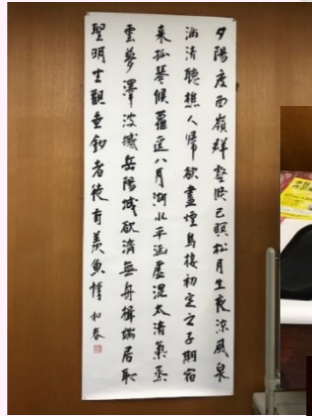 夕陽度西嶺群壑倏已暝松月生夜涼風泉
滿清聽樵人歸欲盡煙鳥棲初定之子期宿
來孤琴候蘿逕八月湖水平涵虛混太清氣蒸
雲夢澤波撼岳陽城欲濟無舟楫端居恥
聖明坐觀垂釣者徒有羨魚情 和春